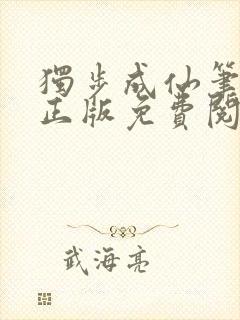 獨步成仙筆
正版免費閱
武海亮